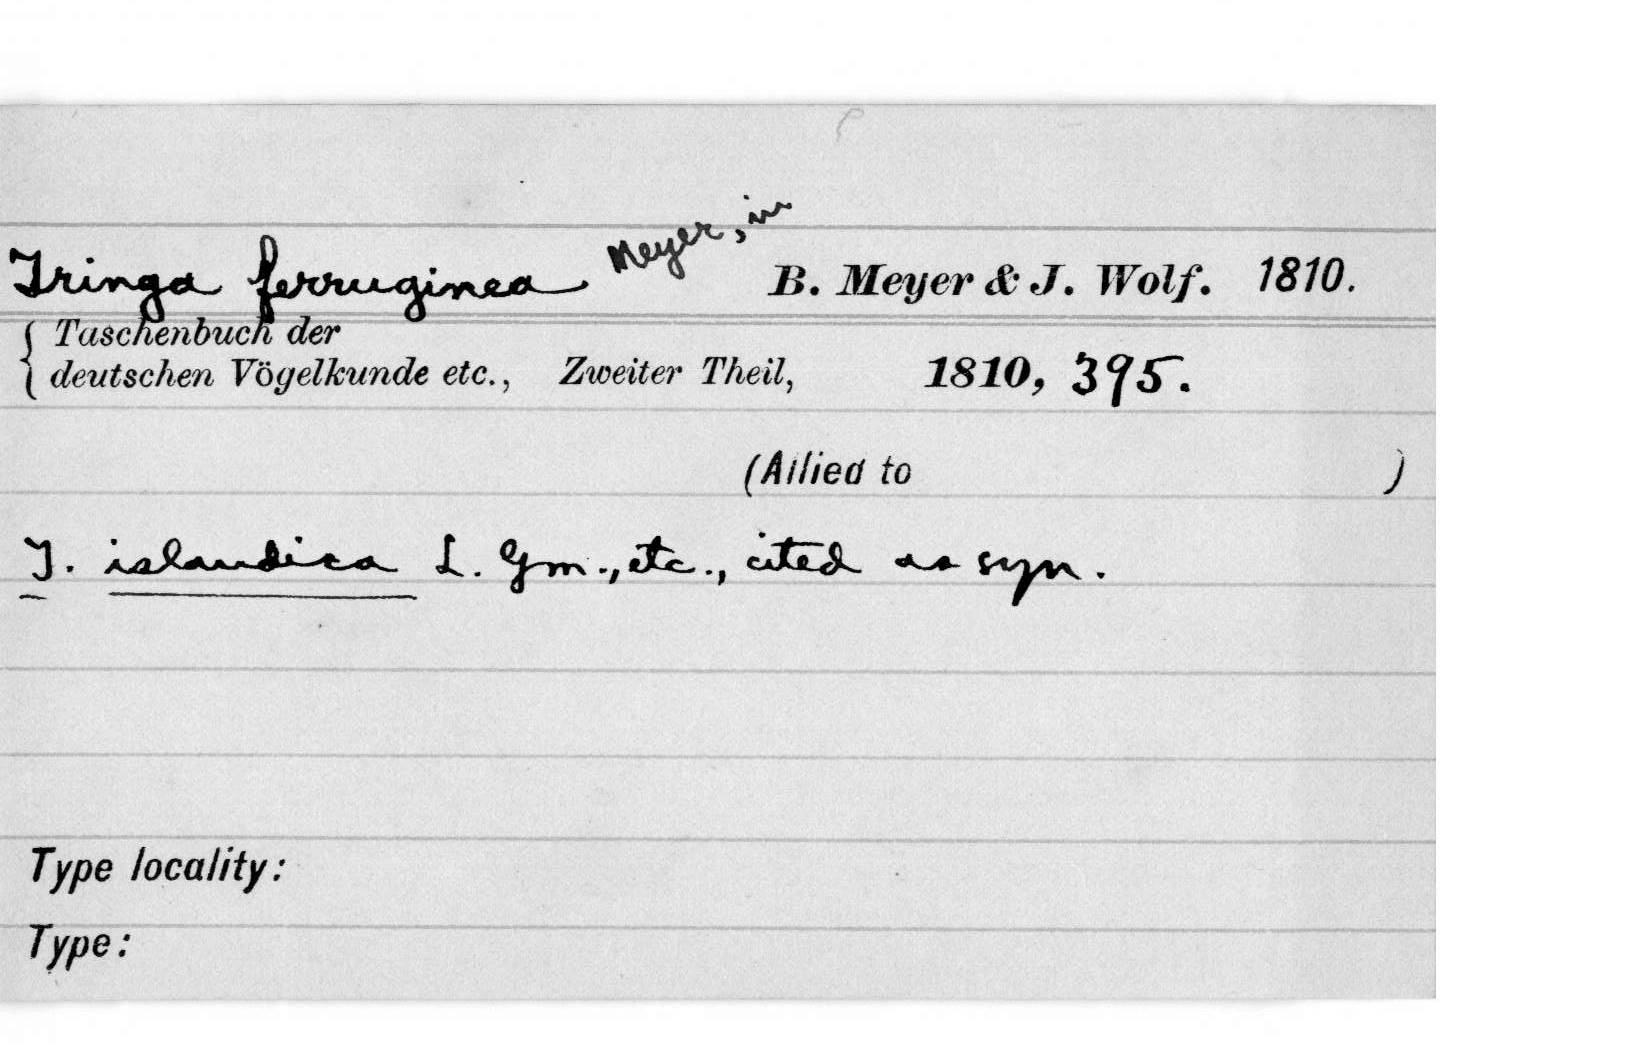 Tringa ferruginea Meyer, in B. Meyer & J. Wolf. 1810.
Taschenbuch der
deutschen Vögelkunde etc., Zweiter Theil, 1810, 395.
(Allied to )
T. islandica L. Gm., etc., cited as syn.
Type locality:
Type: